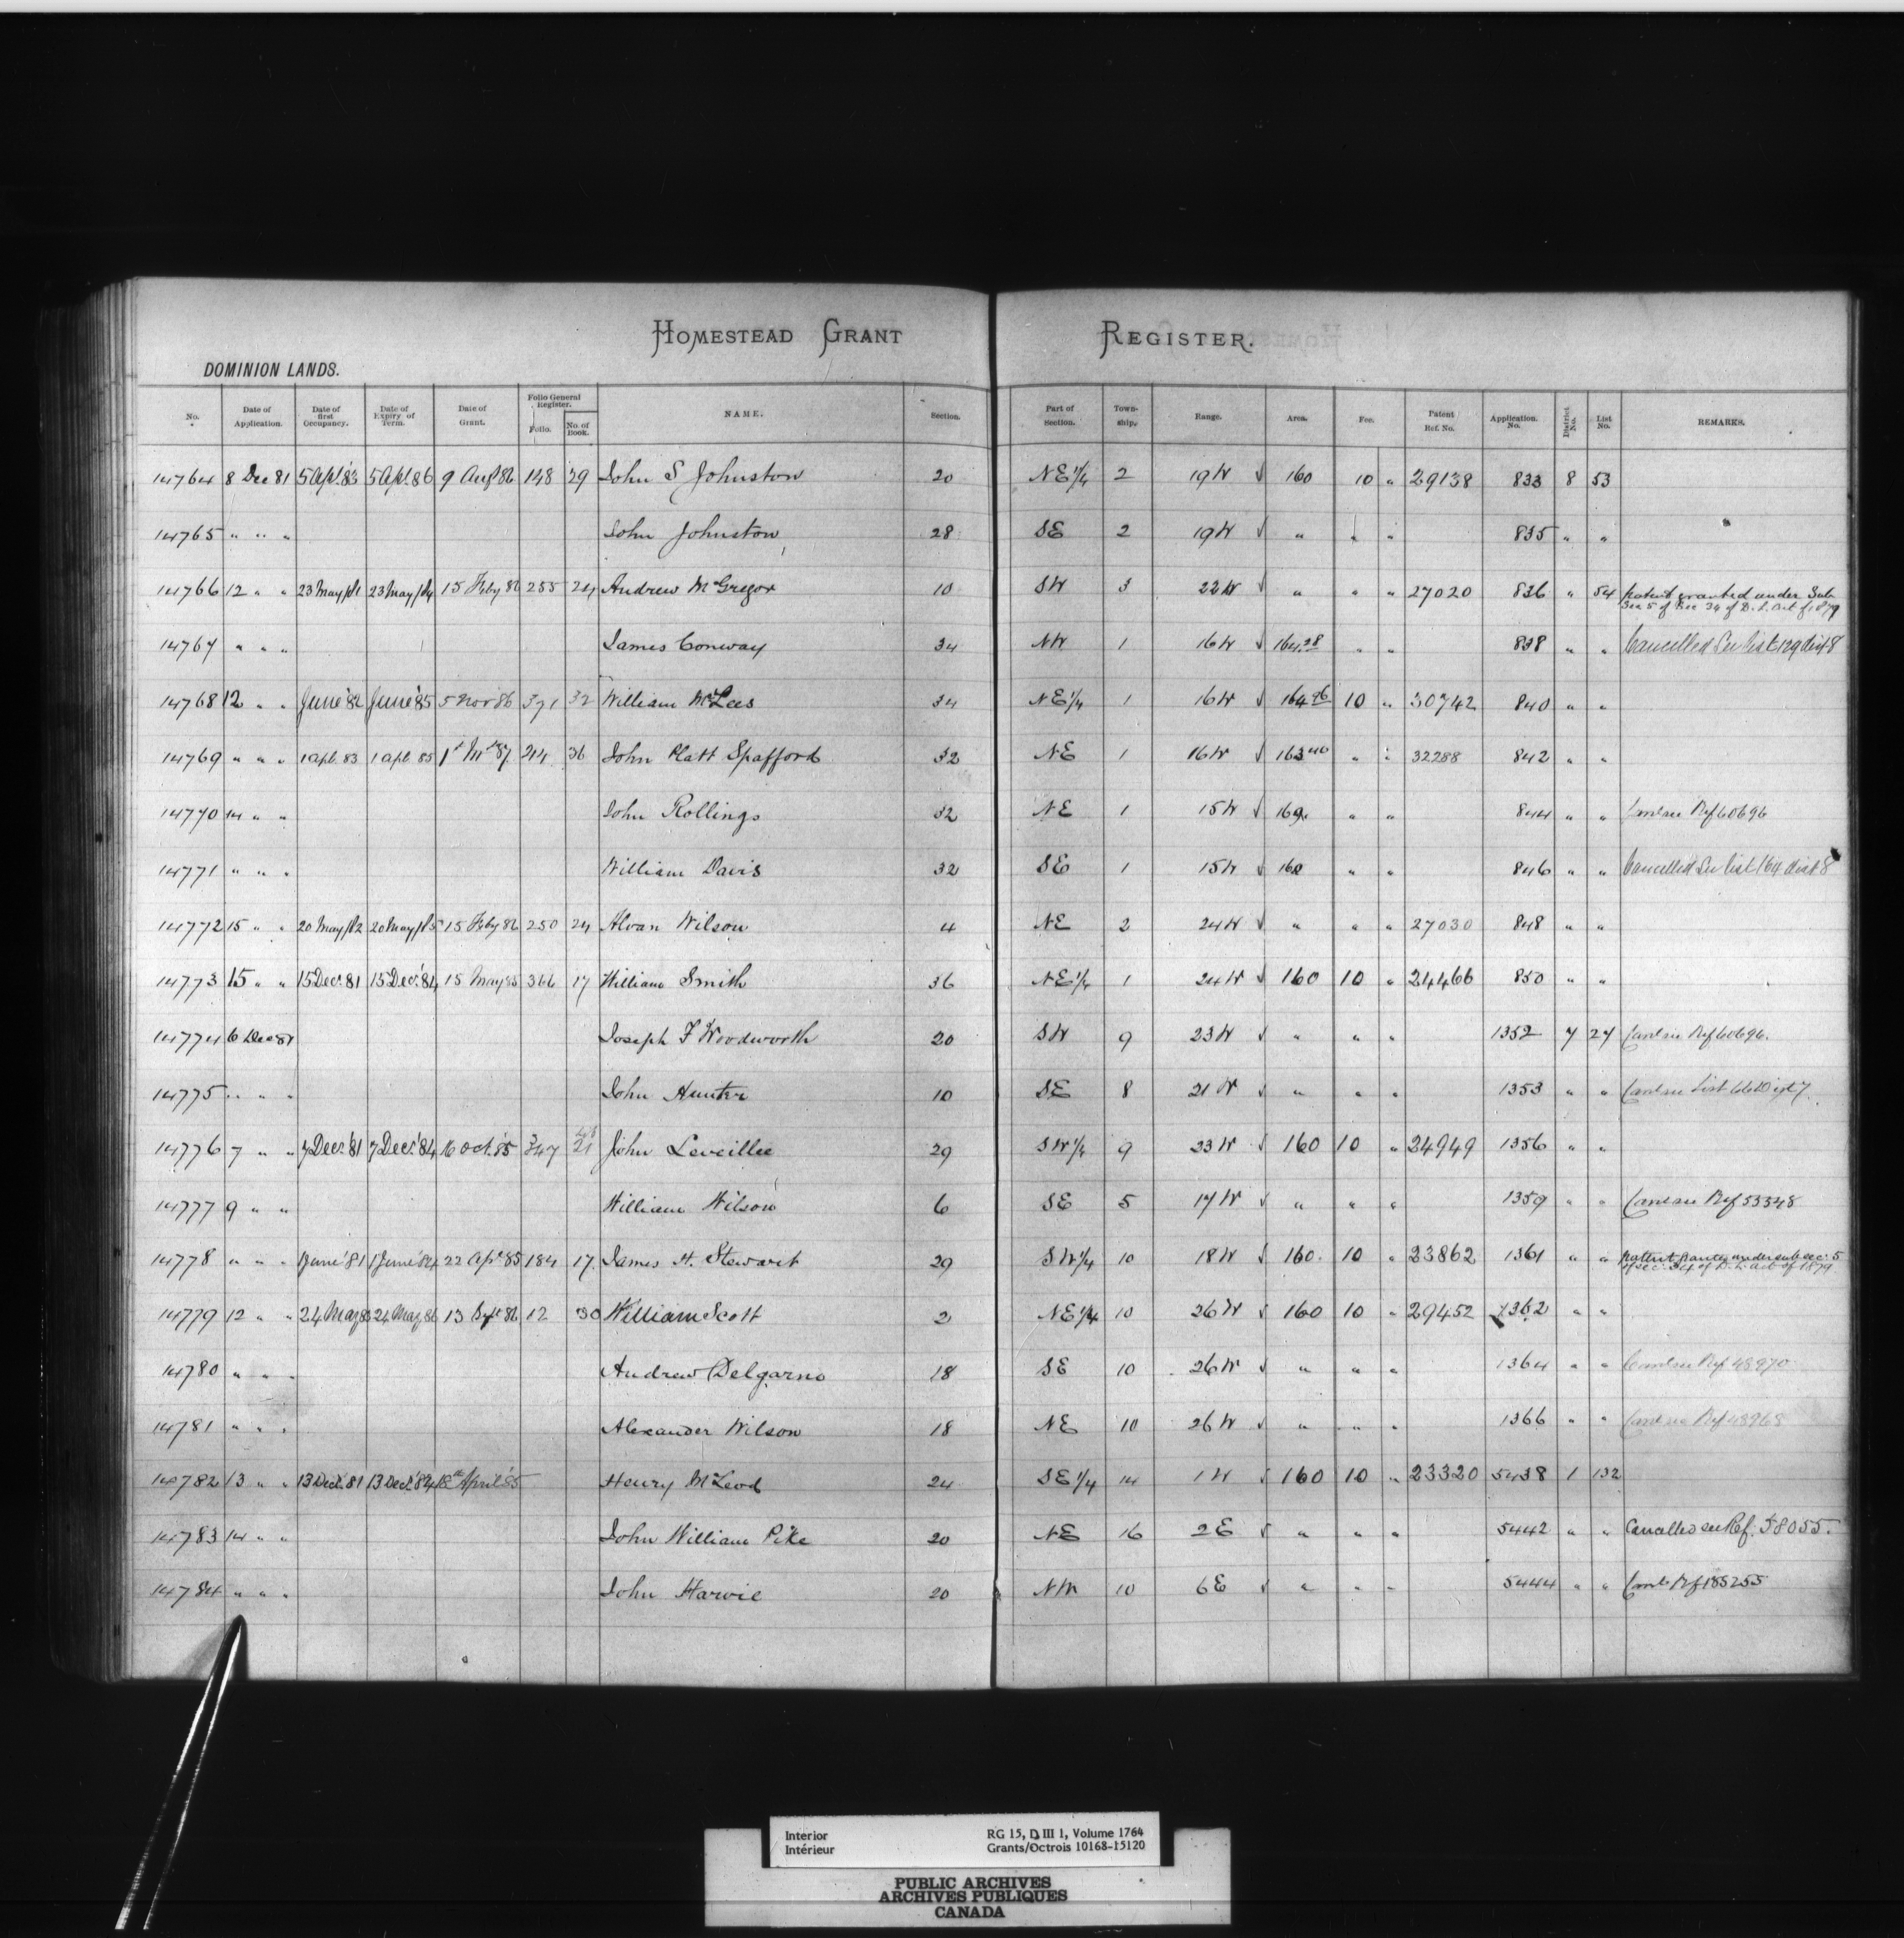 HOMESTEAD GRANT REGISTER.
DOMINION LANDS.
No. Date of Application. Date of first Occupancy. Date of Expiry of Term. Date of Grant. Folio General Register. Folio. No. of Book. NAME. Section. Part of Section. Township. Range. Area. Fee. Patent Ref. No. Application. No. District No. List No. REMARKS.
14764 8 Dec 81 5 Apl. 83 5 Apl. 86 9 Augt 86 148 29 John S Johnston 20 NE 1/4 2 19 W √ 160 10 " 29138 833 8 53
14765 " " " John Johnston 28 SE 2 19 W √ " " " 835 " "
14766 12 " " 23 May 81 23 May 84 15 Feby 86 255 24 Andrew McGregor 10 SW 3 22 W √ " " " 27020 836 " 54 patent granted under Sub
Sec 5 of Sec 34 of D. L. Act of 1879
14767 " " " James Conway 34 NW 1 16 W √ 164.28 " " 838 " " Cancelled See List 129 dist 8
14768 12 " " June '82 June '85 5 Nov 86 371 32 William McLees 34 NE 1/4 1 16 W √ 164.96 10 " 30742 840 " "
14769 " " " 1 apl. 83 1 apl 85 1st Mch 87 214 36 John Platt Spafford 32 NE 1 16 W √ 163.40 " " 32288 842 " "
14770 14 " " John Rollings 32 NE 1 15 W √ 160. " " 844 " " Canl see Ref 60696
14771 " " " William Davis 32 SE 1 15 W √ 160 " " 846 " " Cancelled See List 164 dist 8
14772 15 " " 20 May 82 20 May 85 15 Feby 86 250 24 Alvan Wilson 4 NE 2 24 W √ " " " 27030 848 " "
14773 15 " " 15 Decr. 81 15 Decr. 84 15 May 85 366 17 William Smith 36 NE 1/4 1 24 W √ 160 10 " 24466 850 " "
14774 6 Dec 81 Joseph F Woodworth 20 SW 9 23 W √ " " " 1352 7 27 Canl see Ref 60696.
14775 " " " John Hunter 10 SE 8 21 W √ " " " 1353 " " Canl see List 66 Dist 7
14776 7 " " 7 Decr. 81 7 Decr. 84 16 Oct. 85 347 21 John Leveillee 29 SW 1/4 9 23 W √ 160 10 " 24949 1356 " "
14777 9 " " William Wilson 6 SE 5 17 W √ " " " 1359 " " Canl see Ref 53348
14778 " " " 1 June '81 1 June '84 22 Apl 85 184 17. James H. Stewart 29 SW 1/4 10 18 W √ 160. 10 " 23862 1361 " " patent granted under sub sec. 5
of sec. 34 of D. L. Act of 1879.
14779 12 " " 24 May 83 24 May 86 13 Sept 86 12 30 William Scott 2 NE 1/4 10 26 W √ 160 10 " 29452 1362 " "
14780 " " " Andrew Delgarno 18 SE 10 26 W √ " " " 1364 " " Canl see Ref 48970
14781 " " " Alexander Wilson 18 NE 10 26 W √ " " " 1366 " " Canl see Ref 48968
14782 13 " " 13 Decr. 81 13 Decr. 84 18th April '85 Henry McLeod 24 SE 1/4 14 1 W √ 160 10 " 23320 5438 1 132
14783 14 " " John William Pike 20 NE 16 2 E √ " " " 5442 " " Cancelled see Ref. 58055.
14784 " " " John Harvie 20 NW 10 6 E √ " " " 5444 " " Canl Ref 185255
Interior RG 15, D III 1, Volume 1764
Intérieur Grants/Octrois 10168-15120
PUBLIC ARCHIVES
ARCHIVES PUBLIQUES
CANADA